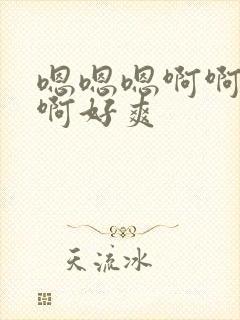 嗯嗯嗯啊啊
啊好爽
天流冰